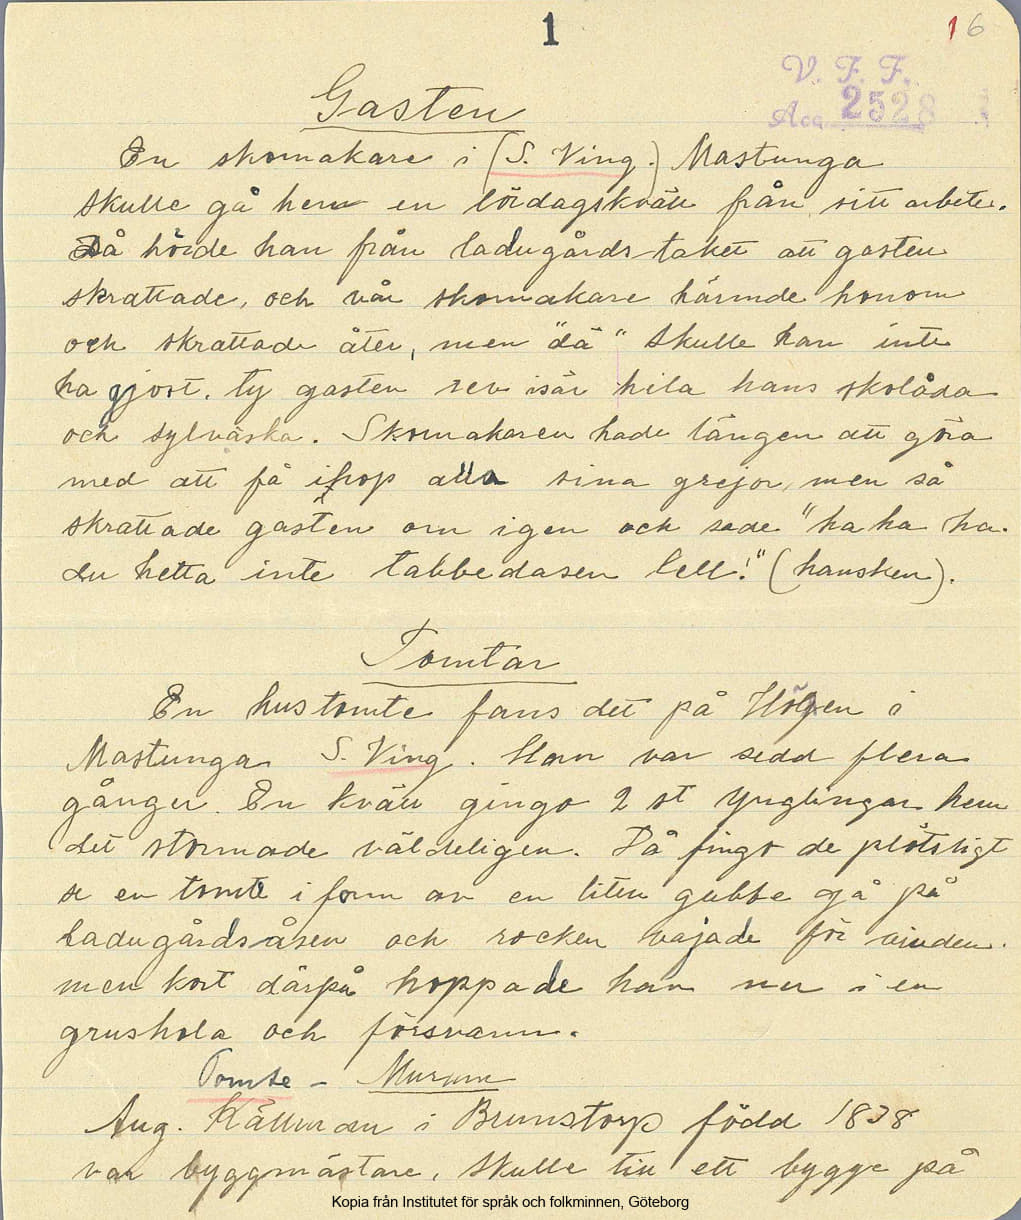 1
16
V. F. F.
Acc 2528
Gasten
En skomakare i (S. Ving.) Mastunga
skulle gå hem en lördagskväll från sitt arbete.
Då hörde han från ladugårdstaket att gasten
skrattade, och vår skomakare härmde honom
och skrattade åter, men "dä" skulle han inte
ha gjort. ty gasten rev isär hila hans skolåda
och sylväska. Skomakaren hade längen att göra
med att få ihop alla sina grejor, men så
skrattade gasten om igen och sade "ha ha ha.
du hetta inte tabbedasen lell!" (hansken).
Tomtar
En hustomte fans det på Högen i
Mastunga S. Ving. Han var sedd flera
gånger. En kväll gingo 2 st ynglingar hem
det stormade väldeligen. Då fingo de plötsligt
se en tomte i form av en liten gubbe gå på
ladugårdsåsen och rocken vajade för vinden.
men kort därpå hoppade han ner i en
grushola och försvann.
Tomte – Murum
Aug. Källman i Brunstorp född 1838
var byggmästare, skulle till ett bygge på
Kopia från Institutet för språk och folkminnen, Göteborg